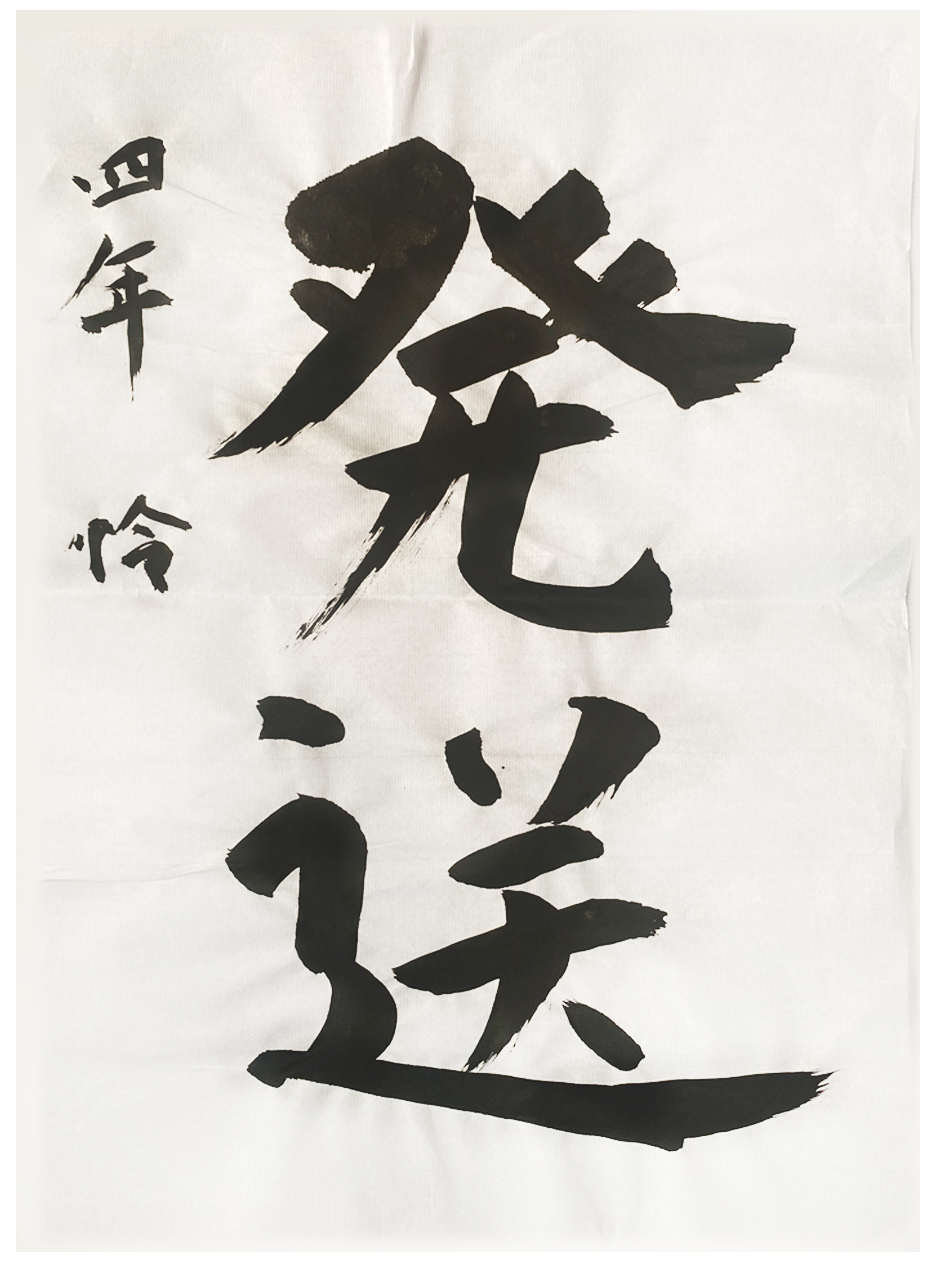 発送
四年 怜